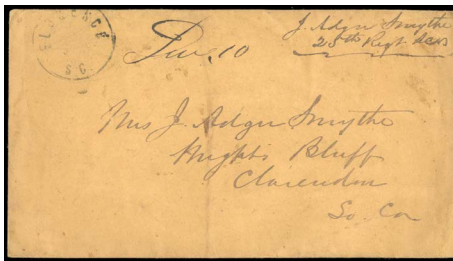 FLORENCE
S.C.
Due. 10
J. Adger Smythe
25th Regt SCV
Mrs J. Adger Smythe
Wright's Bluff
Clarendon
So. Ca